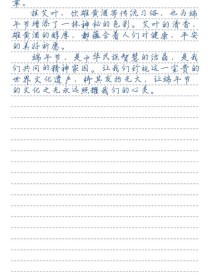 章。
挂艾叶、饮雄黄酒等传统习俗，也为端
午节增添了一抹神秘的色彩。艾叶的清香，
雄黄酒的醇厚，都蕴含着人们对健康、平安
的美好祈愿。
端午节，是中华民族智慧的结晶，是我
们共同的精神家园。让我们珍视这一宝贵的
世界文化遗产，将其发扬光大，让端午节
的文化之光永远照耀我们的心灵。